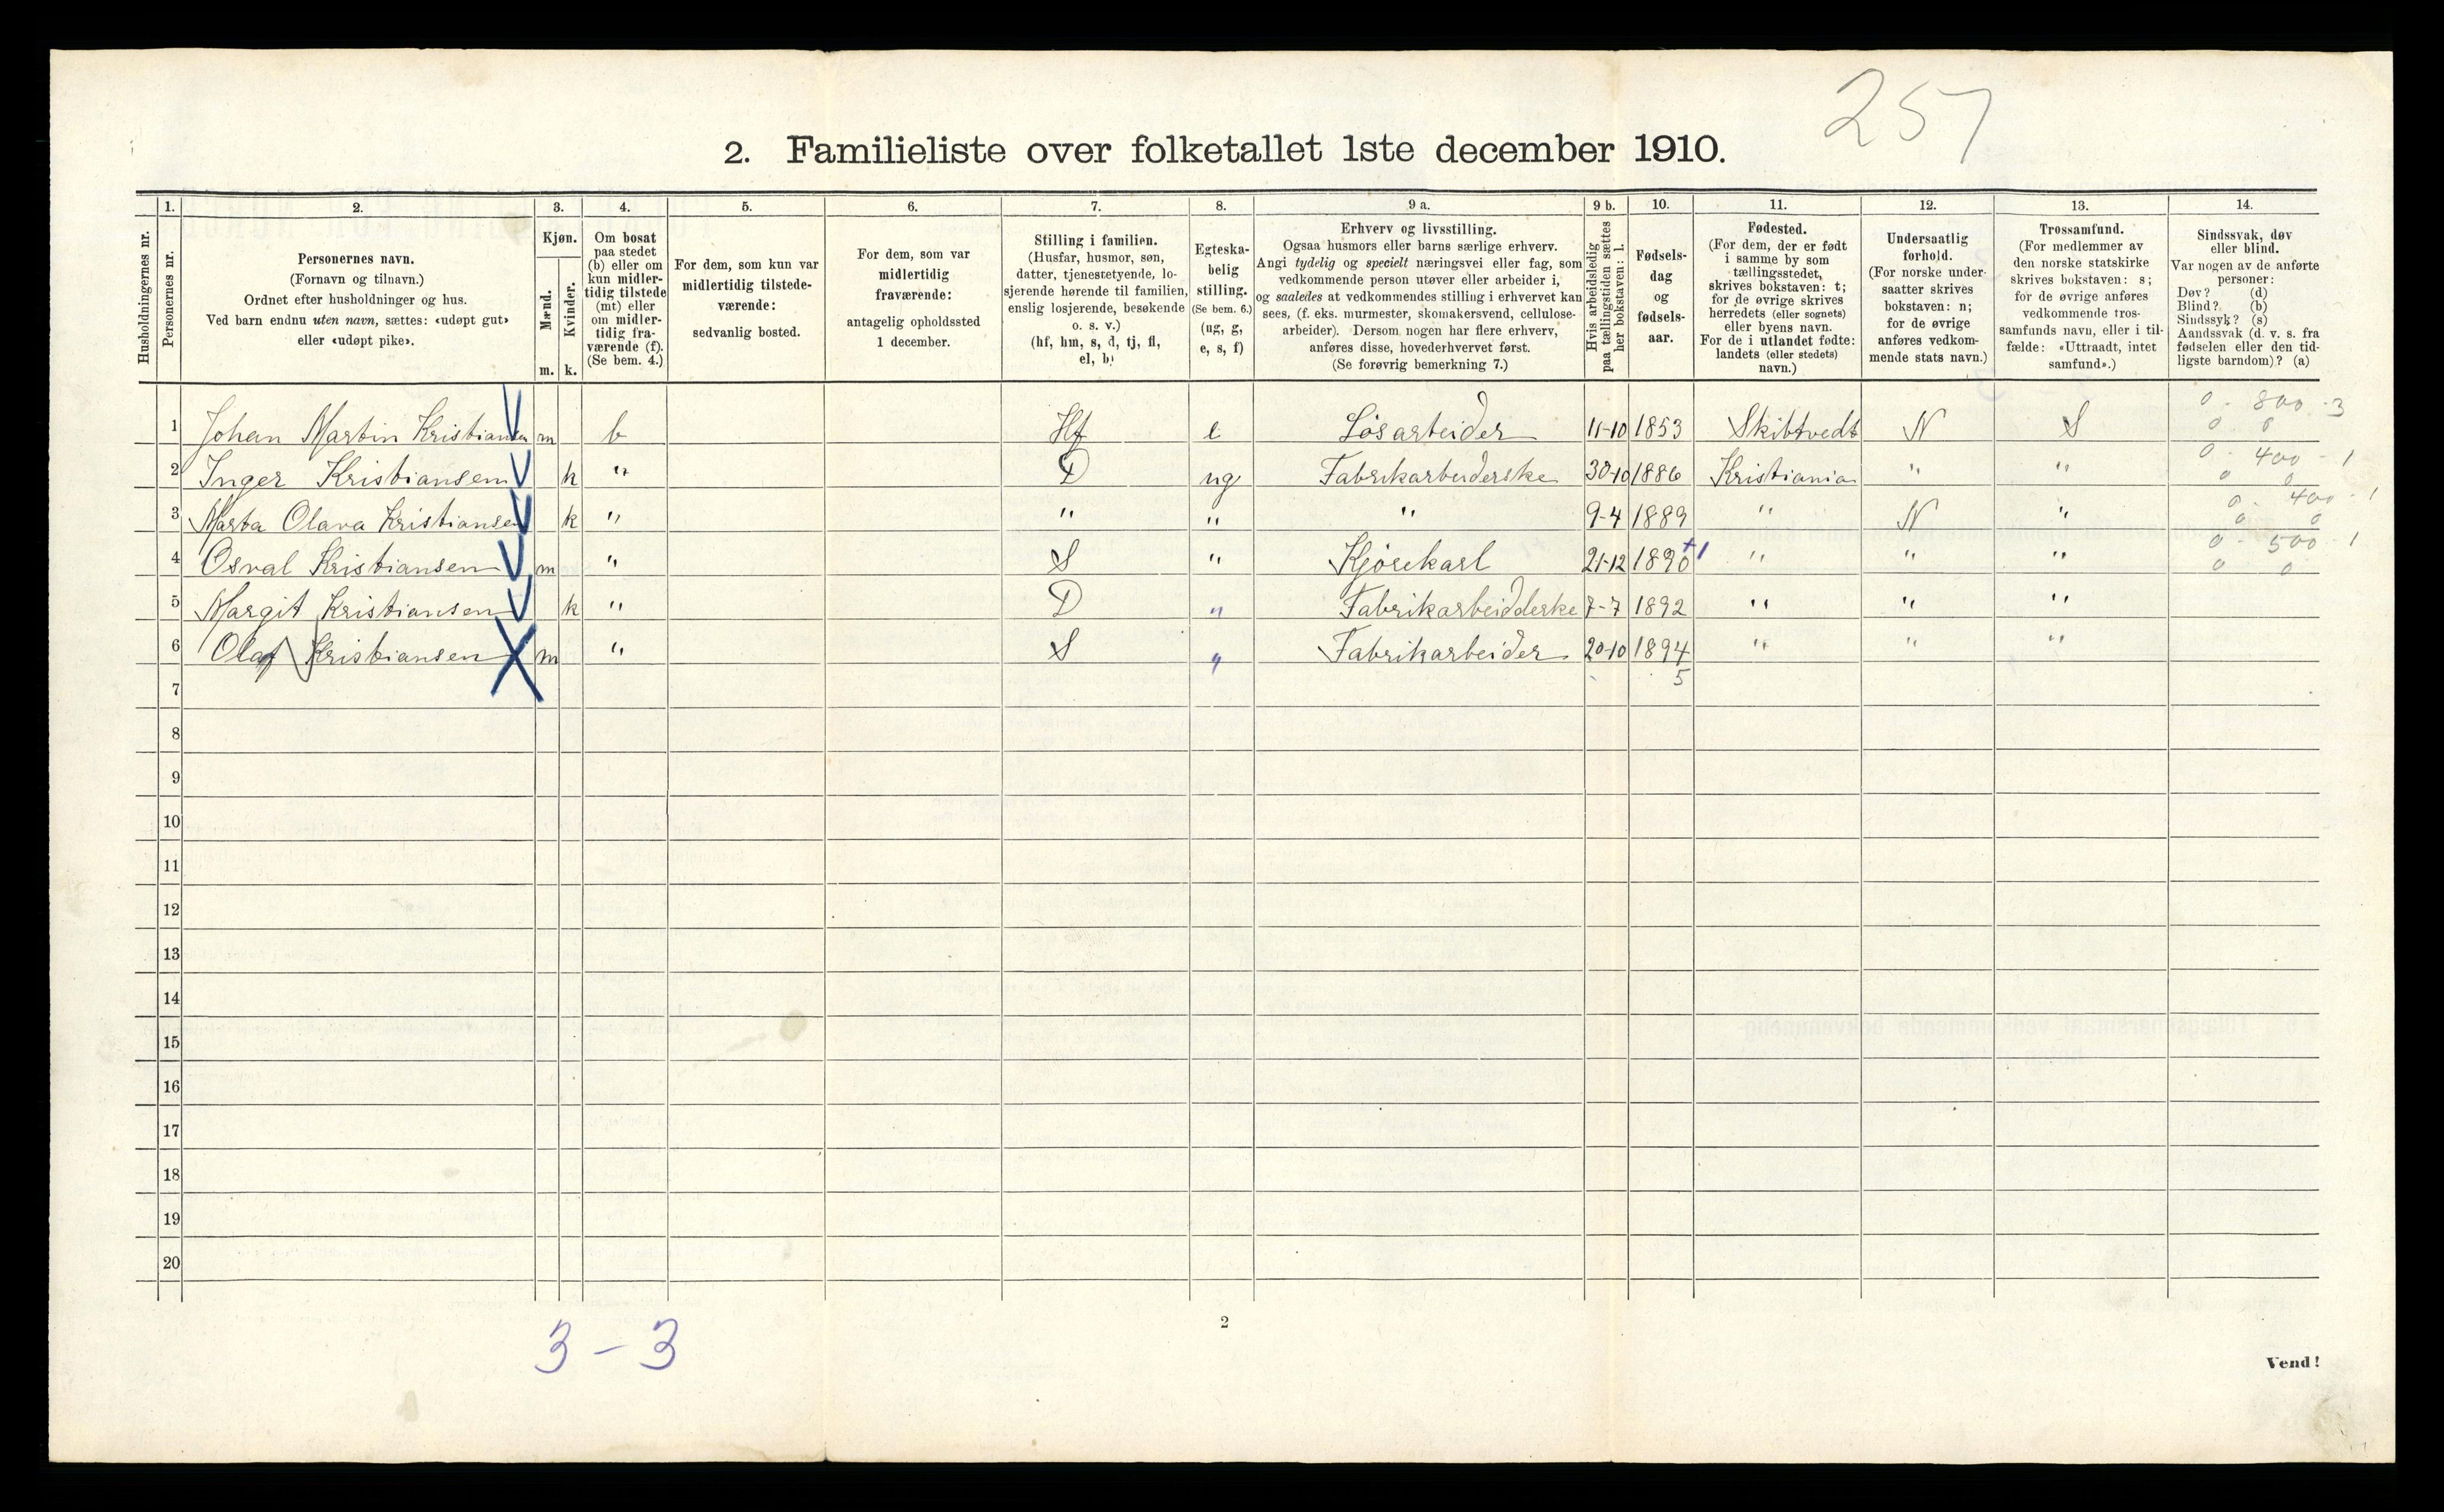 257
2. Familieliste over folketallet 1ste december 1910.
1. 2. 3. 4. 5. 6. 7. 8. 9 a. 9 b. 10. 11. 12. 13. 14.
Husholdningernes nr.
Personernes nr.
Personernes navn.
(Fornavn og tilnavn.)
Ordnet efter husholdninger og hus.
Ved barn endnu uten navn, sættes: «udøpt gut»
eller «udøpt pike».
Kjøn.
Mænd.
Kvinder.
m. k.
Om bosat
paa stedet
(b) eller om
kun midler-
tidig tilstede
(mt) eller
om midler-
tidig fra-
værende (f).
(Se bem. 4.)
For dem, som kun var
midlertidig tilstede-
værende:
sedvanlig bosted.
For dem, som var
midlertidig
fraværende:
antagelig opholdssted
1 december.
Stilling i familien.
(Husfar, husmor, søn,
datter, tjenestetyende, lo-
sjerende hørende til familien,
enslig losjerende, besøkende
o. s. v.)
(hf, hm, s, d, tj, fl,
el, b)
Egteska-
belig
stilling.
(Se bem. 6.)
(ug, g,
e, s, f)
Erhverv og livsstilling.
Ogsaa husmors eller barns særlige erhverv.
Angi tydelig og specielt næringsvei eller fag, som
vedkommende person utøver eller arbeider i,
og saaledes at vedkommendes stilling i erhvervet kan
sees, (f. eks. murmester, skomakersvend, cellulose-
arbeider). Dersom nogen har flere erhverv,
anføres disse, hovederhvervet først.
(Se forøvrig bemerkning 7.)
Hvis arbeidsledig
paa tællingstiden sættes
her bokstaven: l.
Fødsels-
dag
og
fødsels-
aar.
Fødested.
(For dem, der er født
i samme by som
tællingsstedet,
skrives bokstaven: t;
for de øvrige skrives
herredets (eller sognets)
eller byens navn.
For de i utlandet fødte:
landets (eller stedets)
navn.)
Undersaatlig
forhold.
(For norske under-
saatter skrives
bokstaven: n;
for de øvrige
anføres vedkom-
mende stats navn.)
Trossamfund.
(For medlemmer av
den norske statskirke
skrives bokstaven: s;
for de øvrige anføres
vedkommende tros-
samfunds navn, eller i til-
fælde: «Uttraadt, intet
samfund».)
Sindssvak, døv
eller blind.
Var nogen av de anførte
personer:
Døv? (d)
Blind? (b)
Sindssyk? (s)
Aandssvak (d. v. s. fra
fødselen eller den tid-
ligste barndom)? (a)
0 - 800 - 3
1 Johan Martin Kristiansen m b Hf e Løsarbeider 11-10 1853 Skibtvedt N S 0 0
0 - 400 - 1
2 Inger Kristiansen k " D ug Fabrikarbeiderske 30-10 1886 Kristiania " " 0 0
0 - 400 - 1
3 Marta Olava Kristiansen k " " " " 9-4 1889 " N " 0 0
0 500 - 1
4 Osval Kristiansen m " S " Kjørekarl 21-12 1890 +1 " " " 0 0
5 Margit Kristiansen k " D " Fabrikarbeidderske 7-7 1892 " " "
6 Olaf Kristiansen m " S " Fabrikarbeider 20-10 1894 " " "
7 5
8
9
10
11
12
13
14
15
16
17
18
19
20
3 - 3
2
Vend!